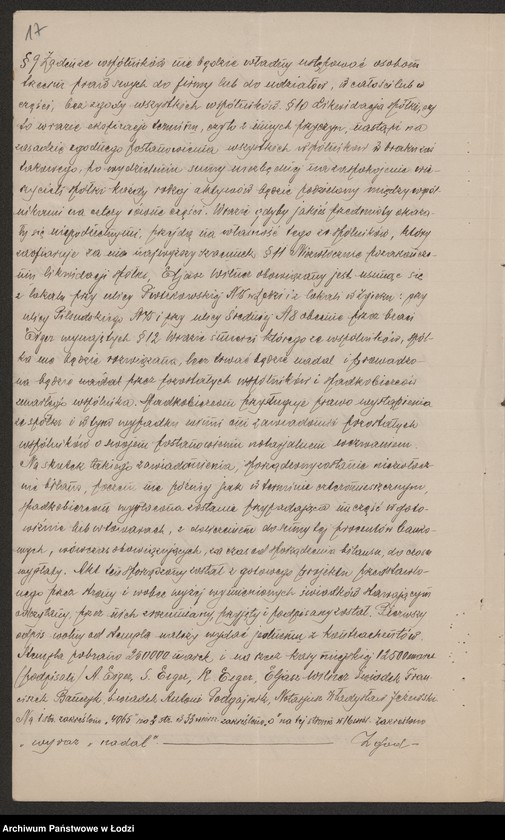 17
§ 9 Żaden ze wspólników nie będzie władny ustępować osobom
trzecim praw swych do firmy lub do udziałów, w całości lub w
części, bez zgody wszystkich wspólników. § 10 Likwidacja spółki, czy
to w razie ekspiracji terminu, czy to z innych przyczyn, nastąpi na
zasadzie zgodnego postanowienia wszystkich wspólników w braku zaś
takowego, po wydzieleniu sumy niezbędnej na zaspokojenie wie-
rzycieli spółki każdy rodzaj aktywów będzie podzielony między wspól-
nikami na cztery równe części. W razie gdyby jakieś przedmioty okaza-
ły się niepodzielnymi, przejdą na własność tego ze spólników, który
zaofiaruje za nie najwyższy szacunek. § 11 Niezwłocznie po zakończe-
niu likwidacji spółki, Eljasz Wolnec obowiązany jest usunąć się
z lokalu przy ulicy Piotrkowskiej N w Łodzi i z lokali w Zgierzu: przy
ulicy Piłsudskiego N i przy ulicy Średniej N 8 obecnie przez braci
Exger wynajętych § 12 W razie śmierci którego ze wspólników, spół-
ka nie będzie rozwiązana, lecz trwać będzie nadal i prowadzo-
na będzie nadal przez pozostałych wspólników i spadkobierców
zmarłego wspólnika. Spadkobiercom przysługuje prawo wystąpienia
ze spółki i w tym wypadku winni oni zawiadomić pozostałych
wspólników o swojem postanowieniu notarjalnem wezwaniem.
Na skutek takiego zawiadomienia, sporządzony zostanie niezwłocz-
nie bilans, poczem nie później jak w terminie czteromiesięcznym,
spadkobiercom wypłacona zostanie przypadająca im część w goto-
wiźnie lub w towarach, z doliczeniem do sumy tej procentów banko-
wych, wówczas obowiązujących, za czas od sporządzenia bilansu, do czasu
wypłaty. Akt ten sporządzony został z gotowego projektu przedstawio-
nego przez strony i wobec wyżej wymienionych świadków stawającym
odczytany, przez nich zrozumiany, przyjęty i podpisany został. Pierwszy
odpis wolny od stempla należy wydać jednemu z kontrahentów.
Stempla pobrano 250000 marek, i na rzecz kasy miejskiej 12500 marek
/podpisali/ A. Exger, S. Exger, K. Exger, Eljasz Wolnec świadek Fran-
ciszek Bańczyk świadek Antoni Podgajński, Notarjusz Władysław Jeruzalski
Na 1 str. zakreślono "4065" na 3 str. w 33 wier. zakreślono "i" na tej stronie w 16 wier. zakreślono
"wyraz "nadal". Zgod-
Archiwum Państwowe w Łodzi